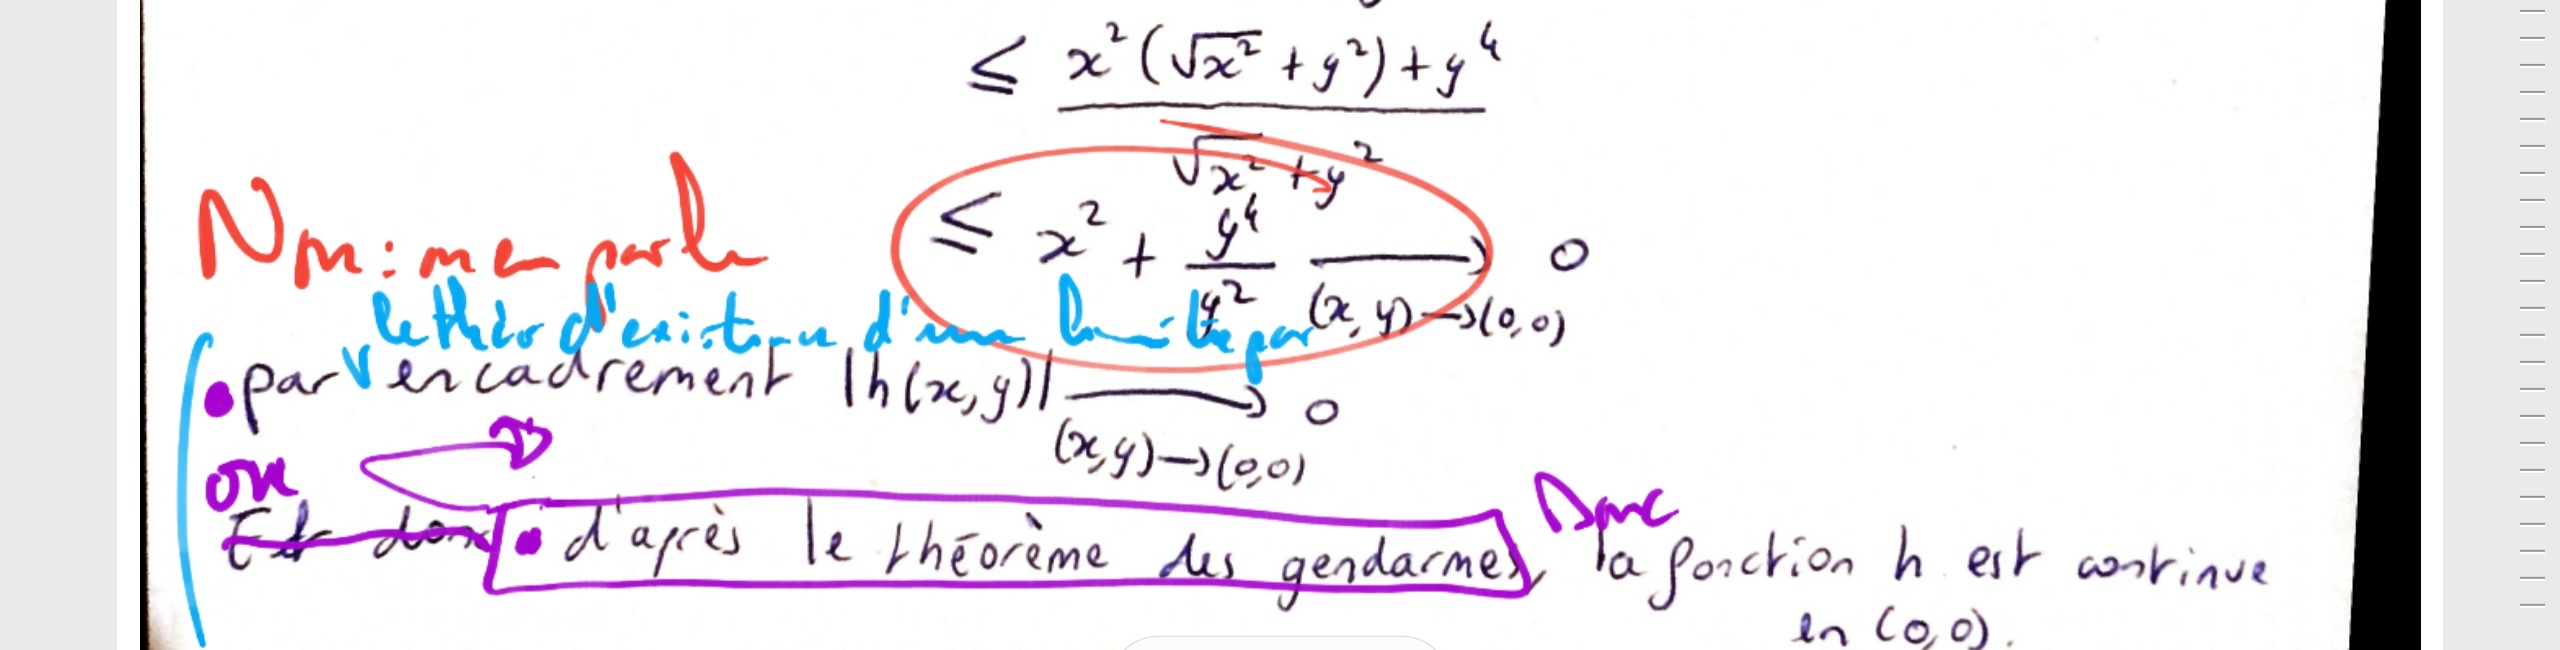 ≤ x²(√x² + y²) + y⁴
√x² + y²
Non :
≤ x² + y⁴/y² → 0
(x, y) → (0,0)
le théo d'existence d'une limite par
• par encadrement |h(x,y)| → 0
(x,y) → (0,0)
ou
Et donc • d'après le théorème des gendarmes, Donc la fonction h est continue
en (0,0).